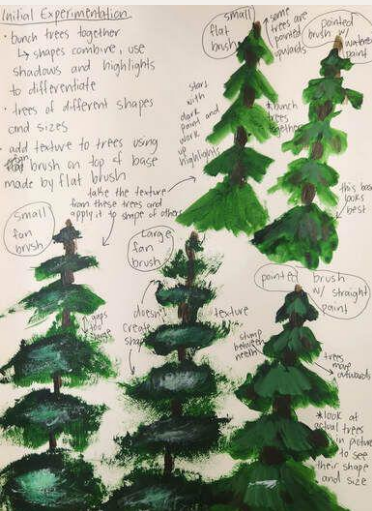 Initial Experimentation
• bunch trees together
↳ shapes combine, use
shadows and highlights
to differentiate
• trees of different shapes
and sizes
• add texture to trees using
fan brush on top of base
made by flat brush
take the texture
from these trees and
apply it to shape of others
small
flat
brush
some
trees are
pointed
upwards
pointed
brush w/
watered
paint
start
with
dark
paint and
work
up
highlights
*bunch
trees
together
this base
looks
best
small
fan
brush
gaps
too
large
fan
brush
doesn't
create
shape
texture
pointed brush
w/ straight
paint
sharp
between
needles
trees
move
outwards
*look at
actual trees
in picture
to see
their shape
and size